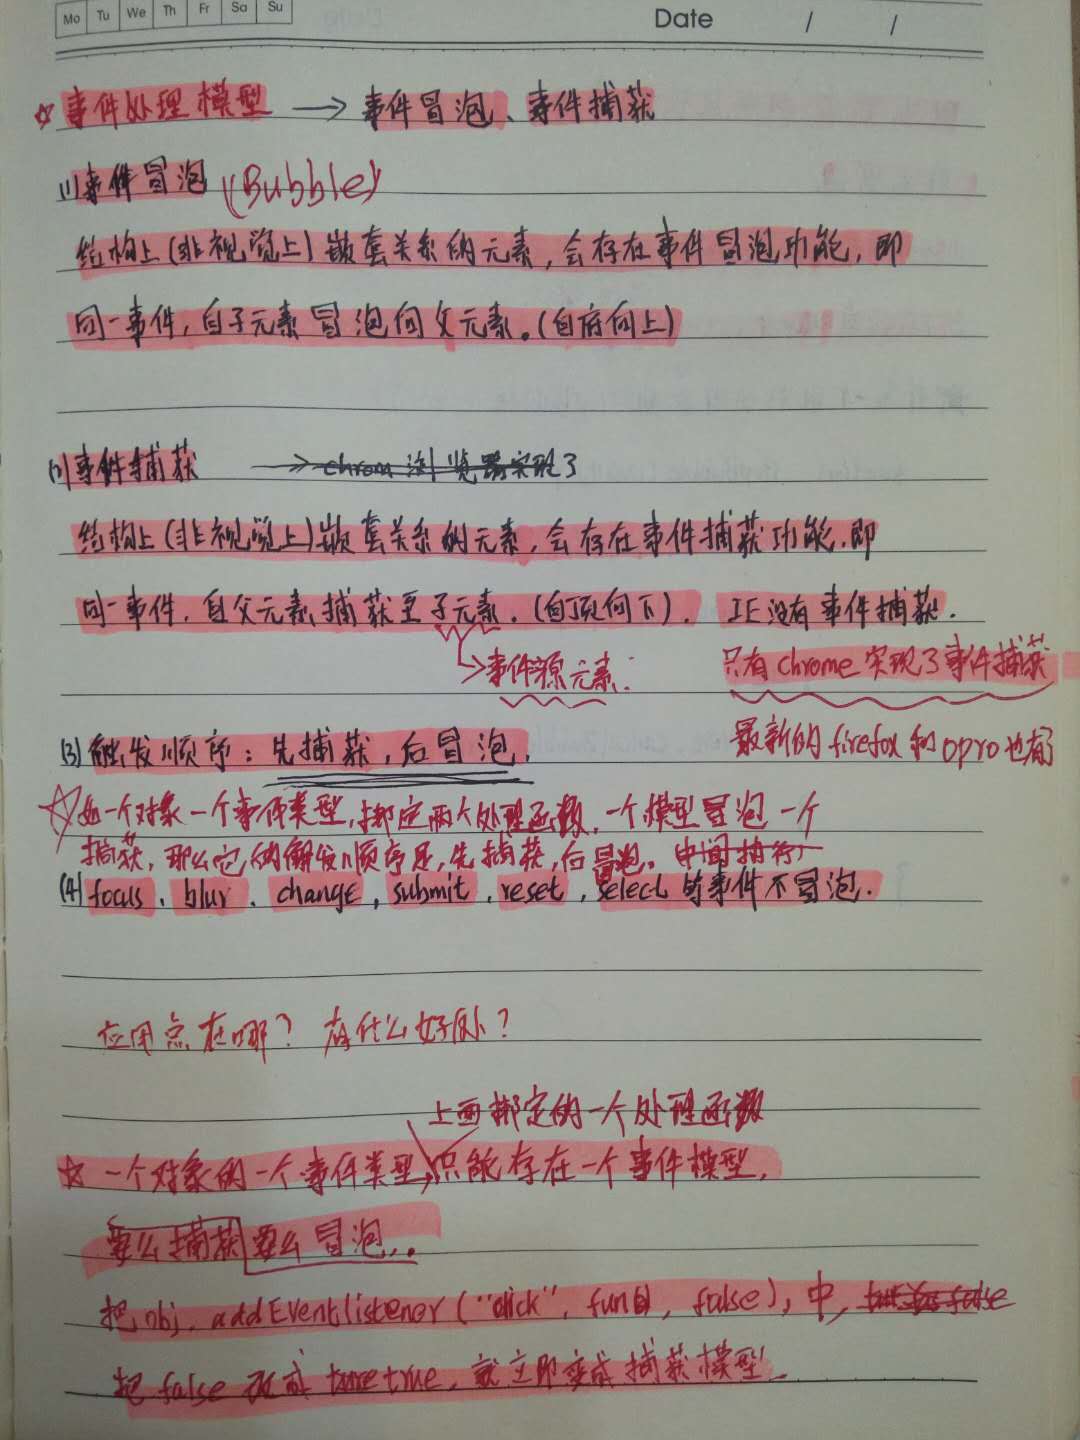 Mo Tu We Th Fr Sa Su Date / /
☆ 事件处理模型 → 事件冒泡、事件捕获
(1)事件冒泡 (Bubble)
结构上(非视觉上)嵌套关系的元素,会存在事件冒泡功能,即
同一事件,自子元素冒泡向父元素。(自底向上)
(2)事件捕获 → chrom 浏览器实现了
结构上(非视觉上)嵌套关系的元素,会存在事件捕获功能.即
同一事件,自父元素捕获至子元素.(自顶向下). IE没有事件捕获.
→事件源元素. 只有chrome实现了事件捕获
(3)触发顺序:先捕获,后冒泡. 最新的firefox和opro也有了
☆如一个对象一个事件类型,绑定两个处理函数,一个模型冒泡一个
捕获,那么它的触发顺序是,先捕获,后冒泡。中间执行
(4)focus、blur、change,submit.reset,select 等事件不冒泡.
应用点在哪?有什么好处?
上面绑定的一个处理函数
☆ 一个对象的一个事件类型,只能存在一个事件模型,
要么捕获 要么冒泡,.
把obj.addEventlistener("click",fun, false),中, false
把false改成 ture true,就立即变成捕获模型.